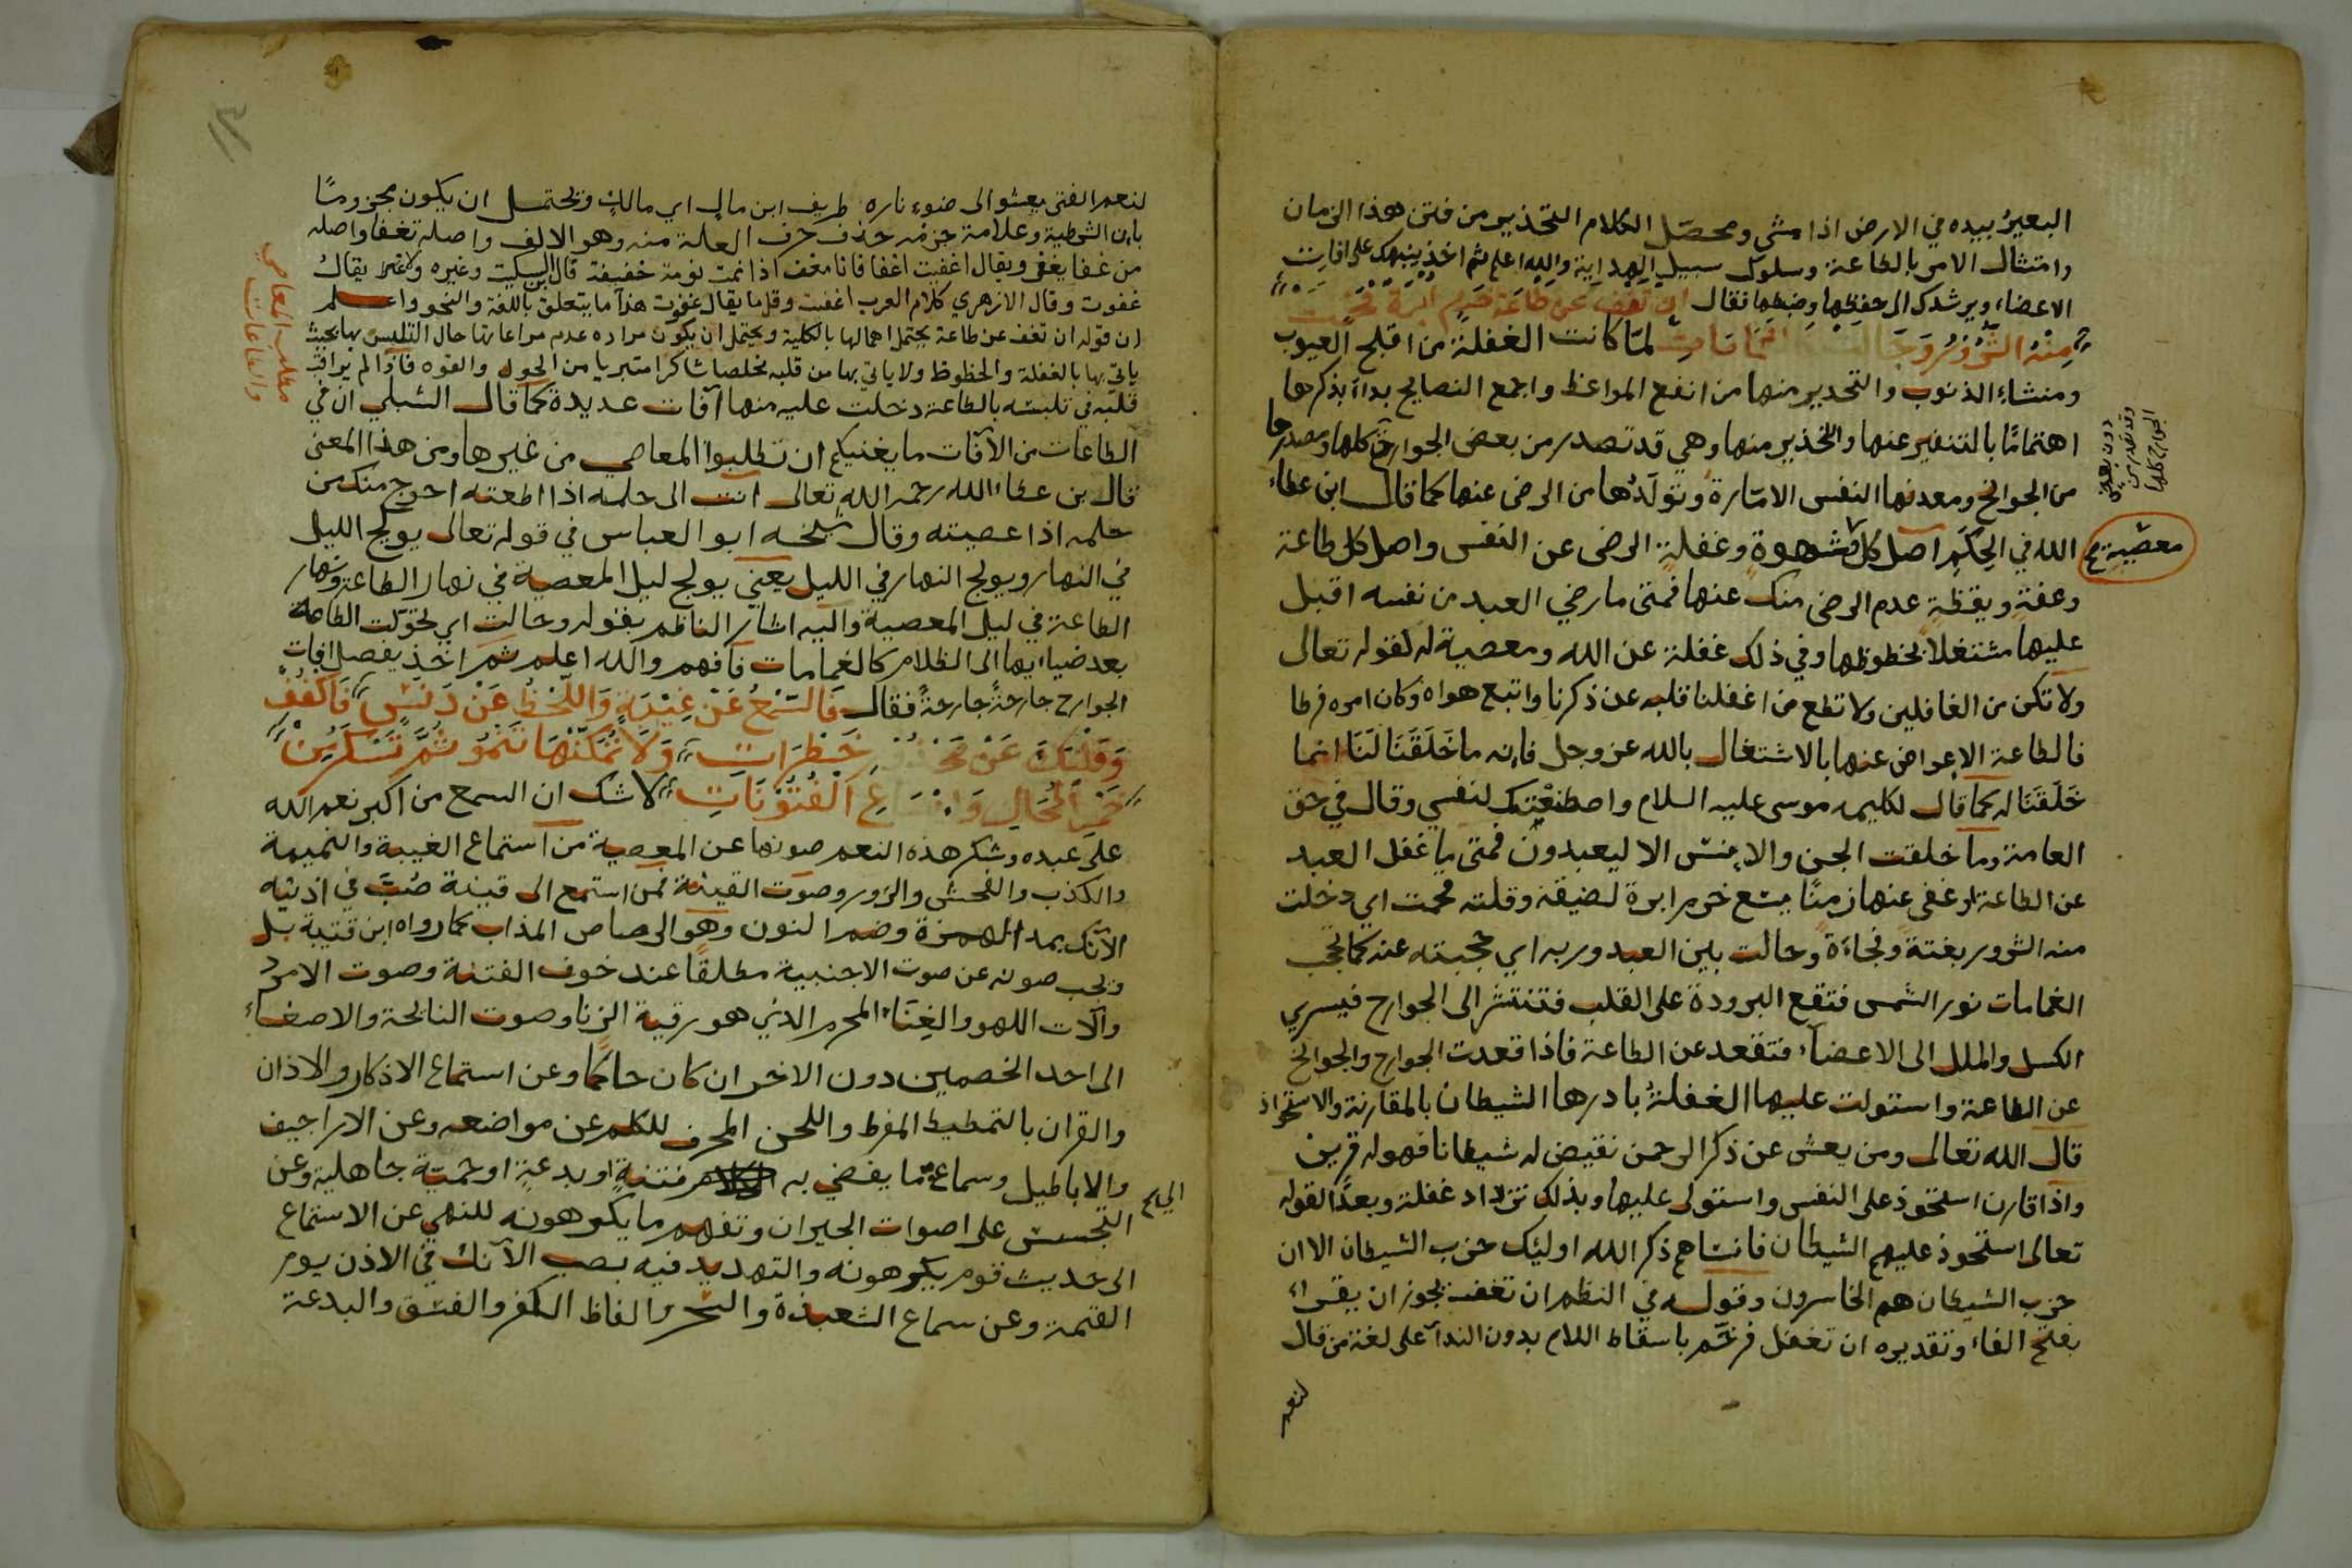 البعير بيده في الارض اذا مشي ومحصل الكلام التحذير من فتن هذا الزمان
وامتثال الامر بالطاعة وسلوك سبيل الهداية والله اعلم ثم اخذ ينبهك على افات
الاعضاء ويرشدك الى حفظها وضبطها فقال ان تغف عن طاعة خرم ابرة فحمت
منه الشرور وحالت غمامات لما كانت الغفلة من اقبح العيوب
ومنشاء الذنوب والتحدير منها من انفع المواعظ واجمع النصايح بداء بذكرها
اهتمامًا بالتنفير عنها والتحذير منها وهي قد تصدر من بعض الجوارح كلها ومصدرها
دون بعض
وقد تصدر من
الجوارح كلها
من الجوانح ومعدنها النفس الامارة وتولدها من الرضى عنها كما قال ابن عطاء
الله في الحكم اصل كل شهوة وغفلة الرضى عن النفس واصل كل طاعة
معصية صح
وعفة ويقظة عدم الرضى منك عنها فمتى ما رضي العبد من نفسه اقبل
عليها مشتغلا بحظوظها وفي ذلك غفلة عن الله ومعصية له لقوله تعالى
ولا تكن من الغافلين ولا تطع من اغفلنا قلبه عن ذكرنا واتبع هواه وكان امره فرطا
فالطاعة الاعراض عنها بالاشتغال بالله عز وجل فانه ما خَلَقَنَا لَنَا انما
خَلَقَنَا له كما قال لكليمه موسى عليه السلام واصطنعتك لنفسي وقال في حق
العامة وما خلقت الجن والانس الا ليعبدون فمتى ما غفل العبد
عن الطاعة او غفى عنها زمنًا يسع خرم ابرة لضيقه وقلته فحمت اي دخلت
منه الشرور بغتة وفجاءة وحالت بين العبد وربه اي حجبته عنه كما تحجب
الغمامات نور الشمس فتقع البرودة على القلب فتنتشر الى الجوارح فيسري
الكسل والملل الى الاعضاء فتقعد عن الطاعة فاذا قعدت الجوارح والجوانح
عن الطاعة واستولت عليها الغفلة بادرها الشيطان بالمقارنة والاستحواذ
قال الله تعالى ومن يعش عن ذكر الرحمن نقيض له شيطانا فهو له قرين
واذا قارن استحوذ على النفس واستولى عليها وبذلك تزداد غفلة وبعدًا لقوله
تعالى استحوذ عليهم الشيطان فانساهم ذكر الله اوليك حزب الشيطان الا ان
حزب الشيطان هم الخاسرون وقوله في النظم ان تغف يجوز ان يقراء
بفتح الفاء وتقديره ان تغفل فرخم باسقاط اللام بدون الندآ على لغة من قال
لنعم
١٣
لنعم الفتى يعشو الى ضوء ناره طريف ابن مال اي مالك ويحتمل ان يكون مجزومًا
بان الشرطية وعلامة جزمه حذف حرف العلة منه وهو الالف واصله تغفا واصله
من غفا يغفى ويقال اغفيت اغفا فانا مغف اذا نمت نومة خفيفة قال ابن السكيت وغيره ولا يقال
غفوت وقال الازهري كلام العرب اغفيت وقل ما يقال غفوت هذا ما يتعلق باللغة والنحو واعلم
ان قوله ان تغف عن طاعة يحتمل اهمالها بالكلية ويحتمل ان يكون مراده عدم مراعاتها حال التلبس بها بحيث
ياتي بها بالغفلة والحظوظ ولا ياتي بها من قلبه مخلصا شاكرا متبريا من الحول والقوه فاذا لم يراقب
مطلب المعاصي
والطاعات
قلبه في تلبسه بالطاعة دخلت عليه منها آفات عديدة كما قال الشبلي ان في
الطاعات من الآفات ما يغنيكم ان تطلبوا المعاصي من غيرها ومن هذا المعنى
قال بن عطاء الله رحمه الله تعالى انت الى حلمه اذا اطعته احوج منك من
حلمه اذا عصيته وقال شيخه ابو العباس في قوله تعالى يولج الليل
في النهار ويولج النهار في الليل يعني يولج ليل المعصية في نهار الطاعة ونهار
الطاعة في ليل المعصية واليه اشار الناظم بقوله وحالت اي تحولت الطاعة
بعد ضيايها الى الظلام كالغمامات فافهم والله اعلم ثم اخذ يفصل افات
الجوارح جارحةً جارحةً فقال فَالسَّمْعُ عَنْ غِيْبَةٍ وَاللَّحْظُ عَنْ دَنَسٍ فَاكْفُفْ
وَقَلْبَكَ عَنْ خَطَرَاتِ وَلَا تُمَكِّنْهَا تَنْمُو ثُمَّ تَسْكَرُ مِنْ
خَمْرِ الْمُحَالِ الْفُتُوْنَاتِ لا شك ان السمع من اكبر نعم الله
على عبده وشكر هذه النعم صونها عن المعصية من استماع الغيبة والنميمة
والكذب والفحش والزور وصوت القينة فمن استمع الى قينة صُبَّ في اذنيه
الآنك بمد الهمزة وضم النون وهو الرصاص المذاب كما رواه ابن قتيبة بل
ويجب صونه عن صوت الاجنبية مطلقًا عند خوف الفتنة وصوت الامرد
وآلات اللهو والغِنَاء المحرم الذي هو رقية الزنا وصوت النايحة والاصغاء
الى احد الخصمين دون الاخر ان كان حاكما وعن استماع الاذكار والاذان
والقران بالتمطيط المفرط واللحن المحرف للكلم عن مواضعه وعن الاراجيف
والاباطيل وسماع ما يفضي به فتنةٍ او بدعةٍ او حميّة جاهلية وعن
التجسس على اصوات الجيران وتفهم ما يكرهونه للنهي عن الاستماع
الى حديث قوم يكرهونه والتهديد فيه بصب الآنك في الاذن يوم
القيمة وعن سماع الشعبذة والسحر والفاظ الكفر والفسق والبدعة